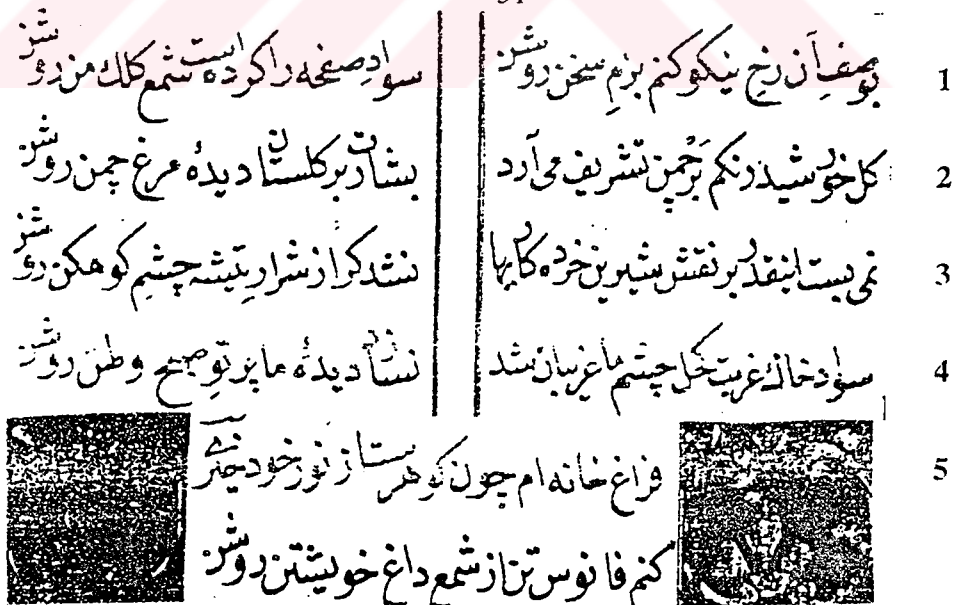 1 بوصفِ آن رخِ نیکو کنم بزمِ سخن روشن سوادِ صفحه را کرده است شمع کلك من روشن
2 کل خورشید رنکم بَر چمن تشریف می آرد بشارت بر کلستان دیدهٔ مرغ چمن روشن
3 نمی بست اینقدر بر نقش شیرین خرده کاریها نشد کر از شرارِ تیشه چشمِ کوهکن روشن
4 سواد خاك غربت کحل چشم ما غریبان شد نسازد دیدهٔ ما پرتوِ صبح وطن روشن
5 فراغ خانه ام چون کوهرست از نور خود
کنم فانوس تن از شمع داغ خویشتن روشن